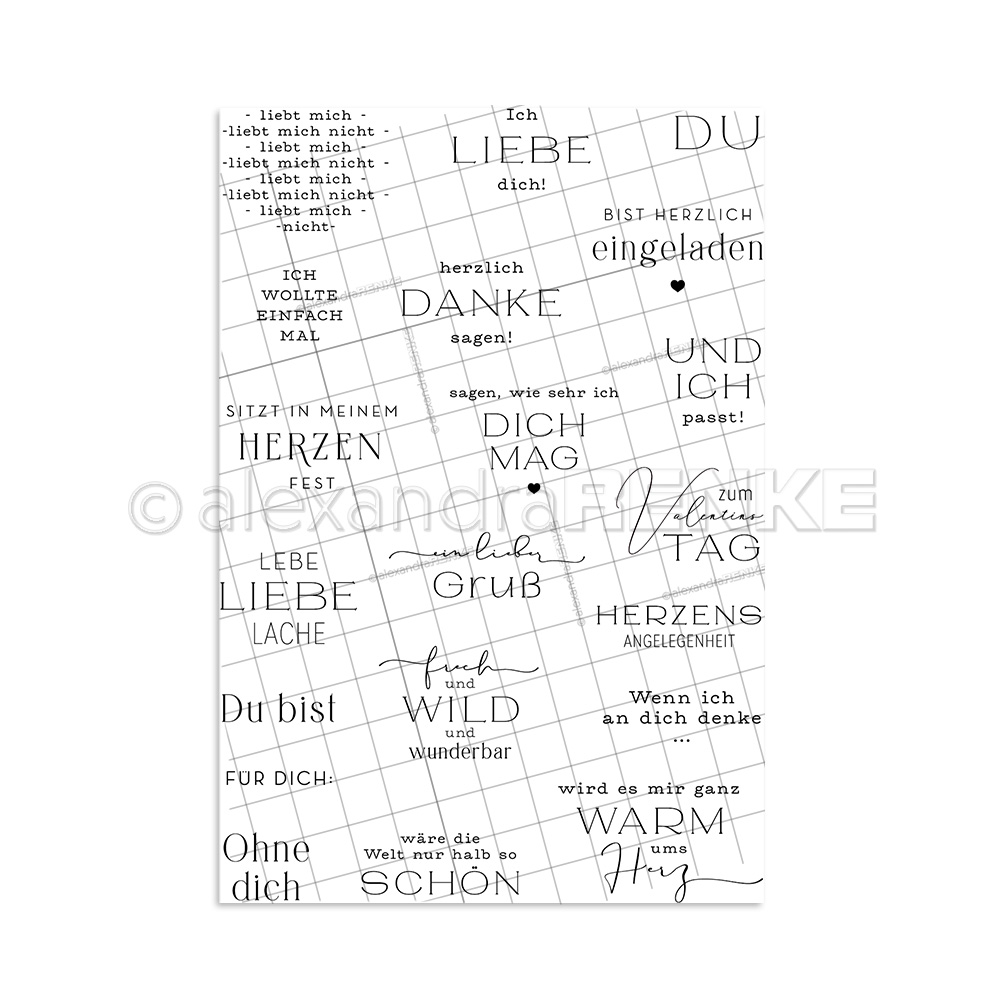 - liebt mich -
-liebt mich nicht -
- liebt mich -
-liebt mich nicht -
- liebt mich -
-liebt mich nicht -
- liebt mich -
-nicht-
Ich
LIEBE
dich!
DU
BIST HERZLICH
eingeladen
ICH
WOLLTE
EINFACH
MAL
herzlich
DANKE
sagen!
UND
ICH
passt!
SITZT IN MEINEM
HERZEN
FEST
sagen, wie sehr ich
DICH
MAG
zum
Valentins
TAG
© alexandraRENKE
LEBE
LIEBE
LACHE
ein lieber
Gruß
HERZENS
ANGELEGENHEIT
Du bist
frech
und
WILD
und
wunderbar
Wenn ich
an dich denke
...
FÜR DICH:
wird es mir ganz
WARM
ums
Herz
Ohne
dich
wäre die
Welt nur halb so
SCHÖN
©alexandraRENKE
©alexandraRENKE
©alexandraRENKE
©alexandraRENKE
©alexandraRENKE
©alexandraRENKE